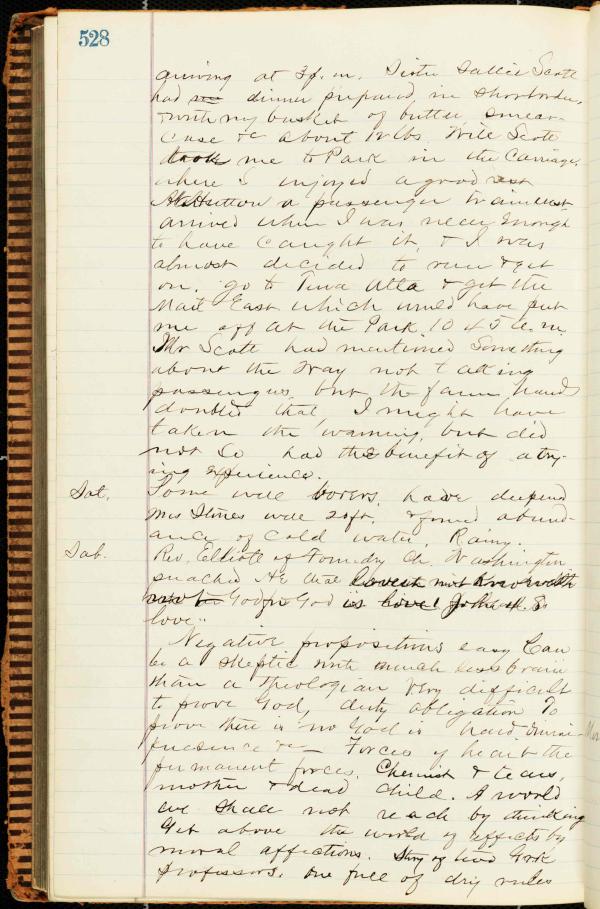 528
arriving at 3 p.m. Sister Sallie Scott
had dinner prepared in short order,
& with my basket of butter, smear-
case &c about 12 lbs. Will Scott
took me to Park in the Carriage,
where I enjoyed a good rest
At Hutton a passenger train west
arrived when I was near enough
to have caught it, & I was
almost decided to run & get
on, go to Terra Alta & get the
Mail East which would have put
me off at the Park 10 45 a.m.
Mr Scott had mentioned something
about the way not taking
passengers, but the farm hand
doubted that, I might have
taken the warning, but did
not so had the benefit of a try-
ing experience.
Sat. Some well borers, have deepend
Mrs Stones well 20 ft. & found abund-
ance of Cold water, Rainy.
Sab. Rev. Elliott of Foundry Ch. Washington
preached He that loveth not knoweth
not God for God is love! John 4. 8
love..
Negative propositions easy Can
be a skeptic with much less brain
than a theologian Very difficult
to prove God, duty obligation To
prove there is no God is hard, Divine
presence &c — Forces of heart the
permanent forces. Chemist & tears,
mother & dead child. A world
we shall not reach by thinking
Get above the world of effects by
moral affections. Story of two Greek
professors. One full of dry rules